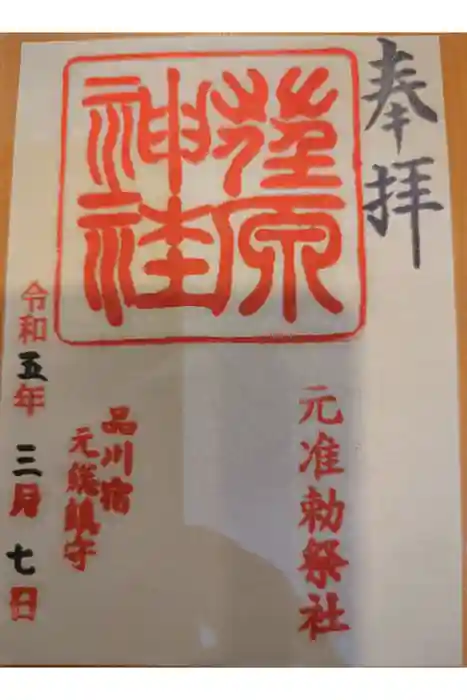 奉拝
荏原
神社
元准勅祭社
品川宿
元総鎮守
令和五年 三月 七日